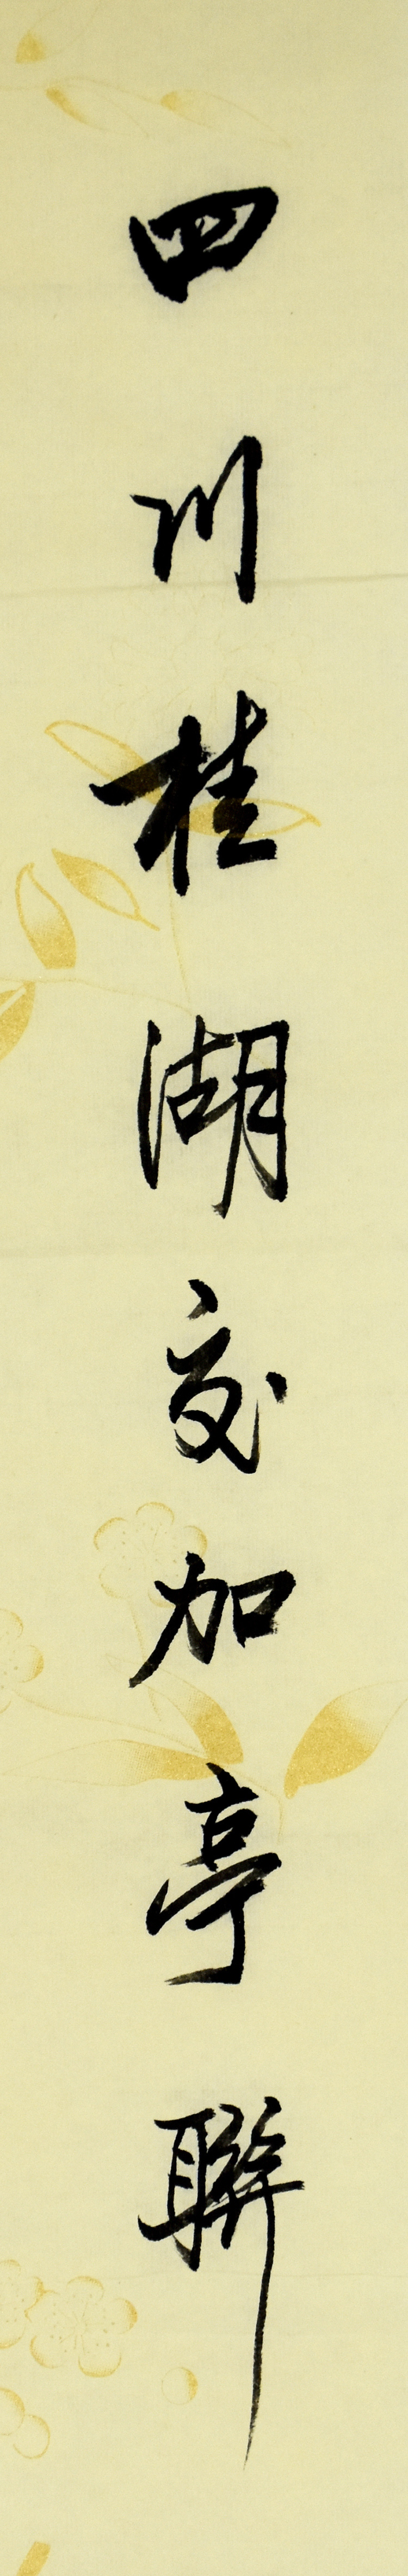 四川桂湖交加亭聯